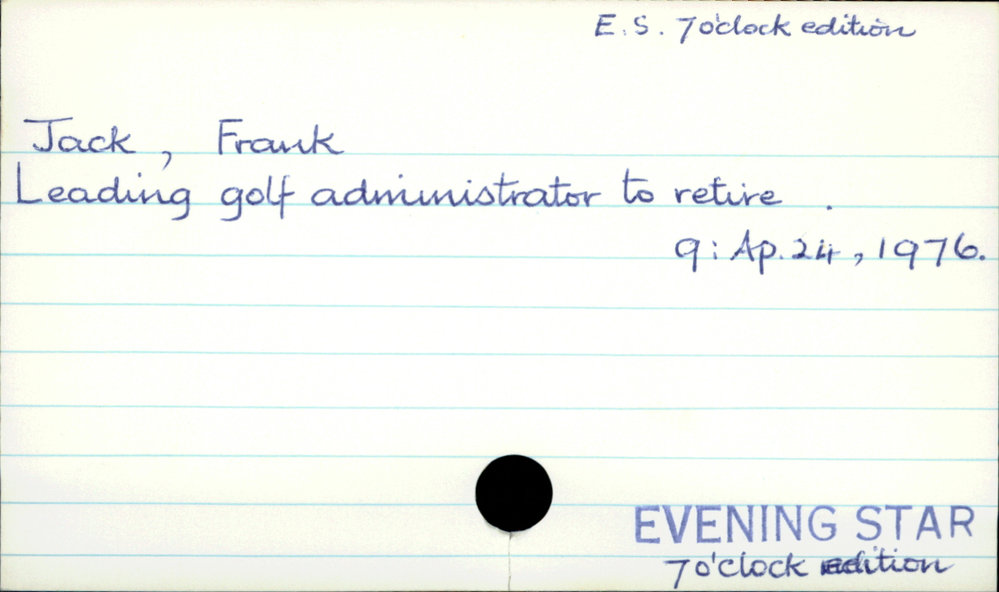 E.S. 7o'clock edition
Jack, Frank
Leading golf administrator to retire.
9: Ap. 24, 1976.
EVENING STAR
7o'clock edition